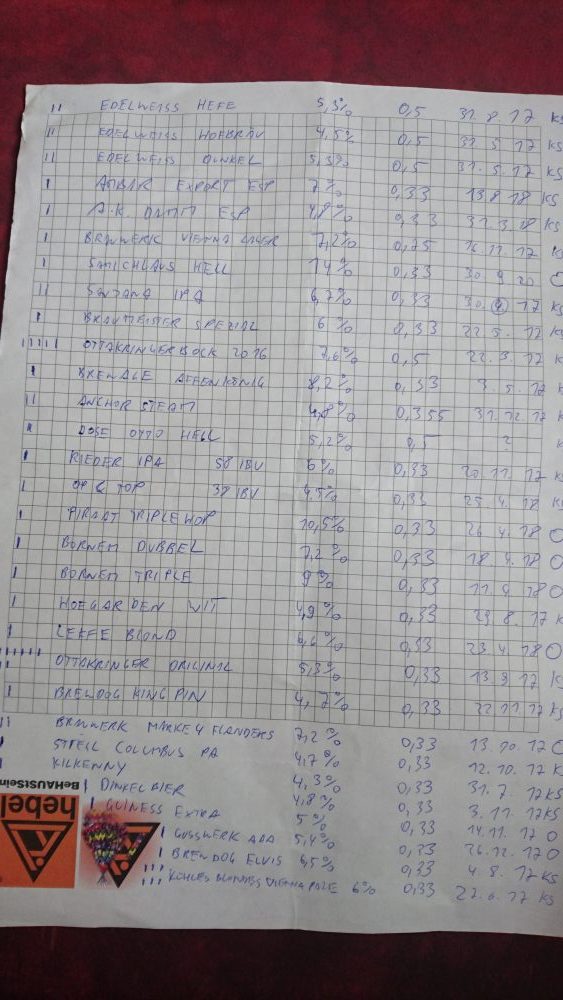 II EDELWEISS HEFE 5,3% 0,5 31.8.17 KS
II EDELWEISS HOFBRÄU 4,5% 0,5 31.5.17 KS
II EDELWEISS DUNKEL 5,3% 0,5 31.5.17 KS
I AMBAR EXPORT ESP 7% 0,33 13.8.18 KS
I A.K. DAMM ESP 4,8% 0,33 31.3.18 KS
I BRAUWERK VIENNA LAGER 7,2% 0,75 16.11.17
I SAMICHLAUS HELL 14% 0,33 30.9.20 O
II SANTANA IPA 6,7% 0,33 30. 17 KS
I BRAUMEISTER SPEZIAL 6% 0,33 22.5.17 K
IIIII OTTAKRINGER BOCK 2016 7,6% 0,5 22.3.17 K
I BREWAGE AFFENKÖNIG 8,2% 0,33 3.5.17 K
II ANCHOR STEAM 4,8% 0,355 31.12.17 K
DOSE OTTO HELL 5,2% 0,5 ? K
I RIEDER IPA 58 IBU 6% 0,33 20.11.17 KS
I OP & TOP 38 IBU 4,5% 0,33 25.4.18 KS
I PIRAAT TRIPLE HOP 10,5% 0,33 26.4.18 O
I BORNEM DUBBEL 7,2% 0,33 18.4.18 O
I BORNEM TRIPLE 9% 0,33 11.4.18 O
I HOEGARDEN WIT 4,9% 0,33 29.8.17 K
I LEFFE BLOND 6,6% 0,33 23.4.18 O
OTTAKRINGER ORIGINAL 5,3% 0,33 13.9.17 K
I BREWDOG KINGPIN 4,7% 0,33 22.11.17 KS
II BRAUWERK MARKE 4 FLANDERS 7,2% 0,33 13.10.17 O
I STEILL COLUMBUS PA 4,7% 0,33 12.10.17 K
I KILKENNY 4,3% 0,33 31.7.17 KS
I DINKELBIER 4,8% 0,33 3.11.17 KS
I GUINESS EXTRA 5% 0,33 14.11.17 O
I GUSSWERK 5,4% 0,33 26.12.17 O
I BREWDOG ELVIS 6,5% 0,33 4.8.17 KS
III VIENNA PALE 6% 0,33 27.6.17 KS
BeHAUStSein
hebel